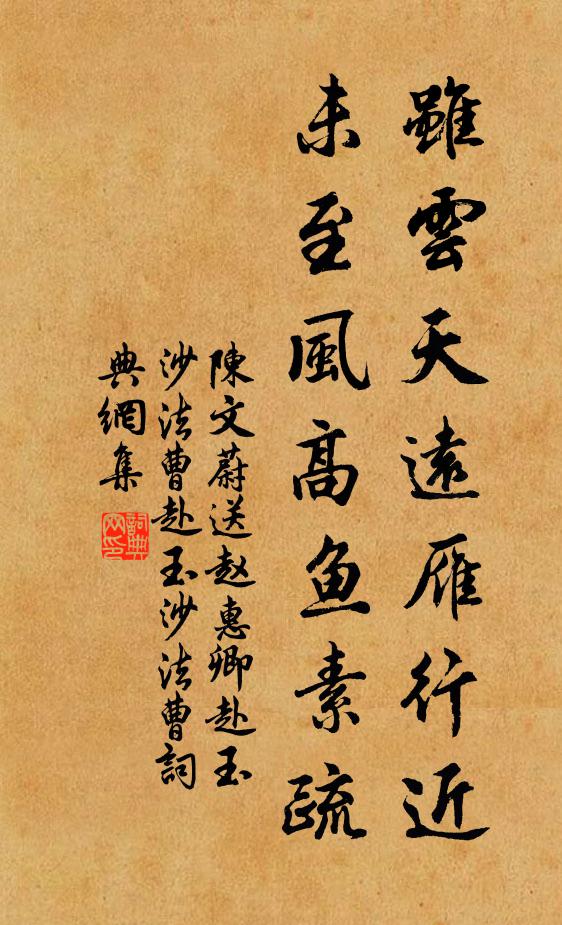 雖雲天遠雁行近
未至風高魚素疏
陳文蔚送赵惠卿赴玉
沙法曹赴玉沙法曹詞
典網集
詞典网印